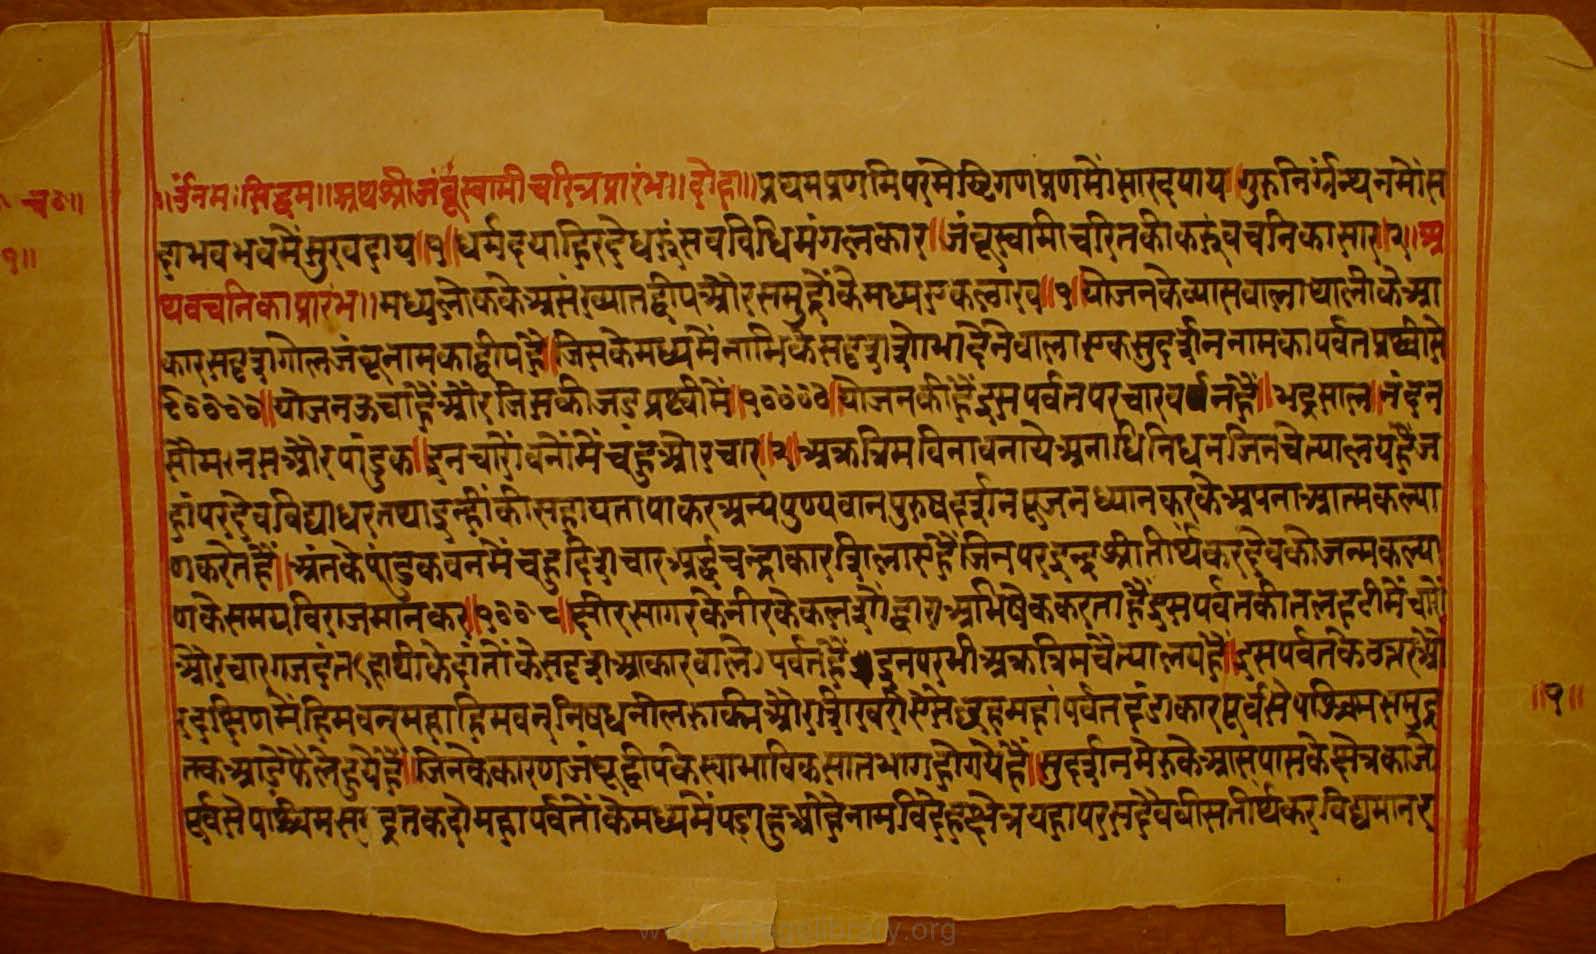 च॰॥
१॥
॥ॐनमःसिद्धम॥अथश्रीजंबूस्वामीचरित्रप्रारंभः॥दोहा॥प्रथमप्रणमिपरमेष्टिगणप्रणमोंसारदपाय॥गुरुनिर्ग्रन्थनमोंस
दाभवभवमैंसुखदाय॥१॥धर्मदयाहिरदेधरूंसवविधिमंगलकार॥जंबूस्वामीचरितकीकरुंवचनिकासार॥२॥अ
थवचनिकाप्रारंभः॥मध्यलोककेअसंख्यातद्वीपऔरसमुद्रोंकेमध्यएकलाख॥१॥योजनकेव्यासवालाथालीकेआ
कारसदृशगोलजंबूनामकाद्वीपहै॥जिसकेमध्यमेंनाभिकेसदृशशोभादेनेवालाएकसुदर्शननामकापर्वतप्रष्वीसे
९००००॥योजनऊचाहैंऔरजिसकीजडप्रष्वीमें॥१००००॥योजनकीहैंइसपर्वतपरचारवनहैं॥भद्रसाल॥नंदन
सौमनसऔरपांडुक॥इनचारोंवनोंमेंचहुऔरचार॥४॥अक्रत्रिमविनावनायेअनाधिनिधनजिनचेत्यालयहैंज
हांपरदेवविद्याधरतथाइन्हींकीसहायतापाकरअन्यपुण्यवानपुरुषदर्शनपूजनध्यानकरकेअपनाआत्मकल्या
णकरतेहैं॥अंतकेपांडुकवनमेंचहुदिशचारअर्द्धचन्द्राकारशिलाएंहैंजिनपरइन्द्रश्रीतीर्थंकरदेवकोजन्मकल्या
णकेसमयविराजमानकर॥१००८॥क्षीरसागरकेनीरकेकलशोंद्वाराअभिषेककरताहैइसपर्वतकीतलहटीमेंचारों
ओरचारगजदंत(हाथीकेदांतोंकेसदृशआकारवाले)पर्वतहैंइनपरभीअक्रत्रिमचेत्यालयहैं॥इसपर्वतकेउत्तरऔ
रदक्षिणमेंहिमवन्महाहिमवननिषधनीलरुक्मिऔरशिखरीऐसेछहमहांपर्वतदंडाकारपूर्वसेपश्चिमसमुद्र
तकआडेफैलेहुयेहैं॥जिनकेकारणजंबूद्वीपकेस्वाभाविकसातभागहोगयेहैं॥सुदर्शनमेरुकेआसपासकेक्षेत्रकाजो
पूर्वसेपश्चिमसमुद्रतकदोमहापर्वतोंकेमध्यमेंपडाहुआहैनामविदेहक्षेत्रयहापरसदैववीसतीर्थंकरविद्यमानर
॥१॥